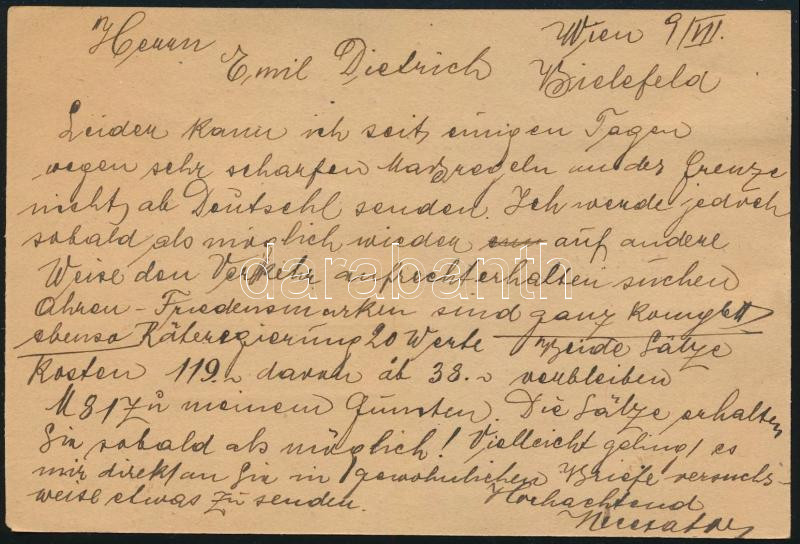 Wien 9/VII.
Herrn
Emil Dietrich Bielefeld
Leider kann ich seit einigen Tagen
wegen sehr scharfen Maßregeln an der Grenze
nicht ab Deutschl senden. Ich werde jedoch
sobald als möglich wieder auf andere
Weise den Verkehr aufrechterhalten suchen
Ähren - Friedensmarken sind ganz komplett
ebenso Räteregierung 20 Werte Beide Sätze
kosten 119.- davon ab 38.- verbleiben
M 81 zu meinem Gunsten. Die Sätze erhalten
Sie sobald als möglich! Vielleicht gelingt es
mir direkt an Sie in gewöhnlichen Briefe versuchs-
weise etwas zu senden.
Hochachtend
darabanth